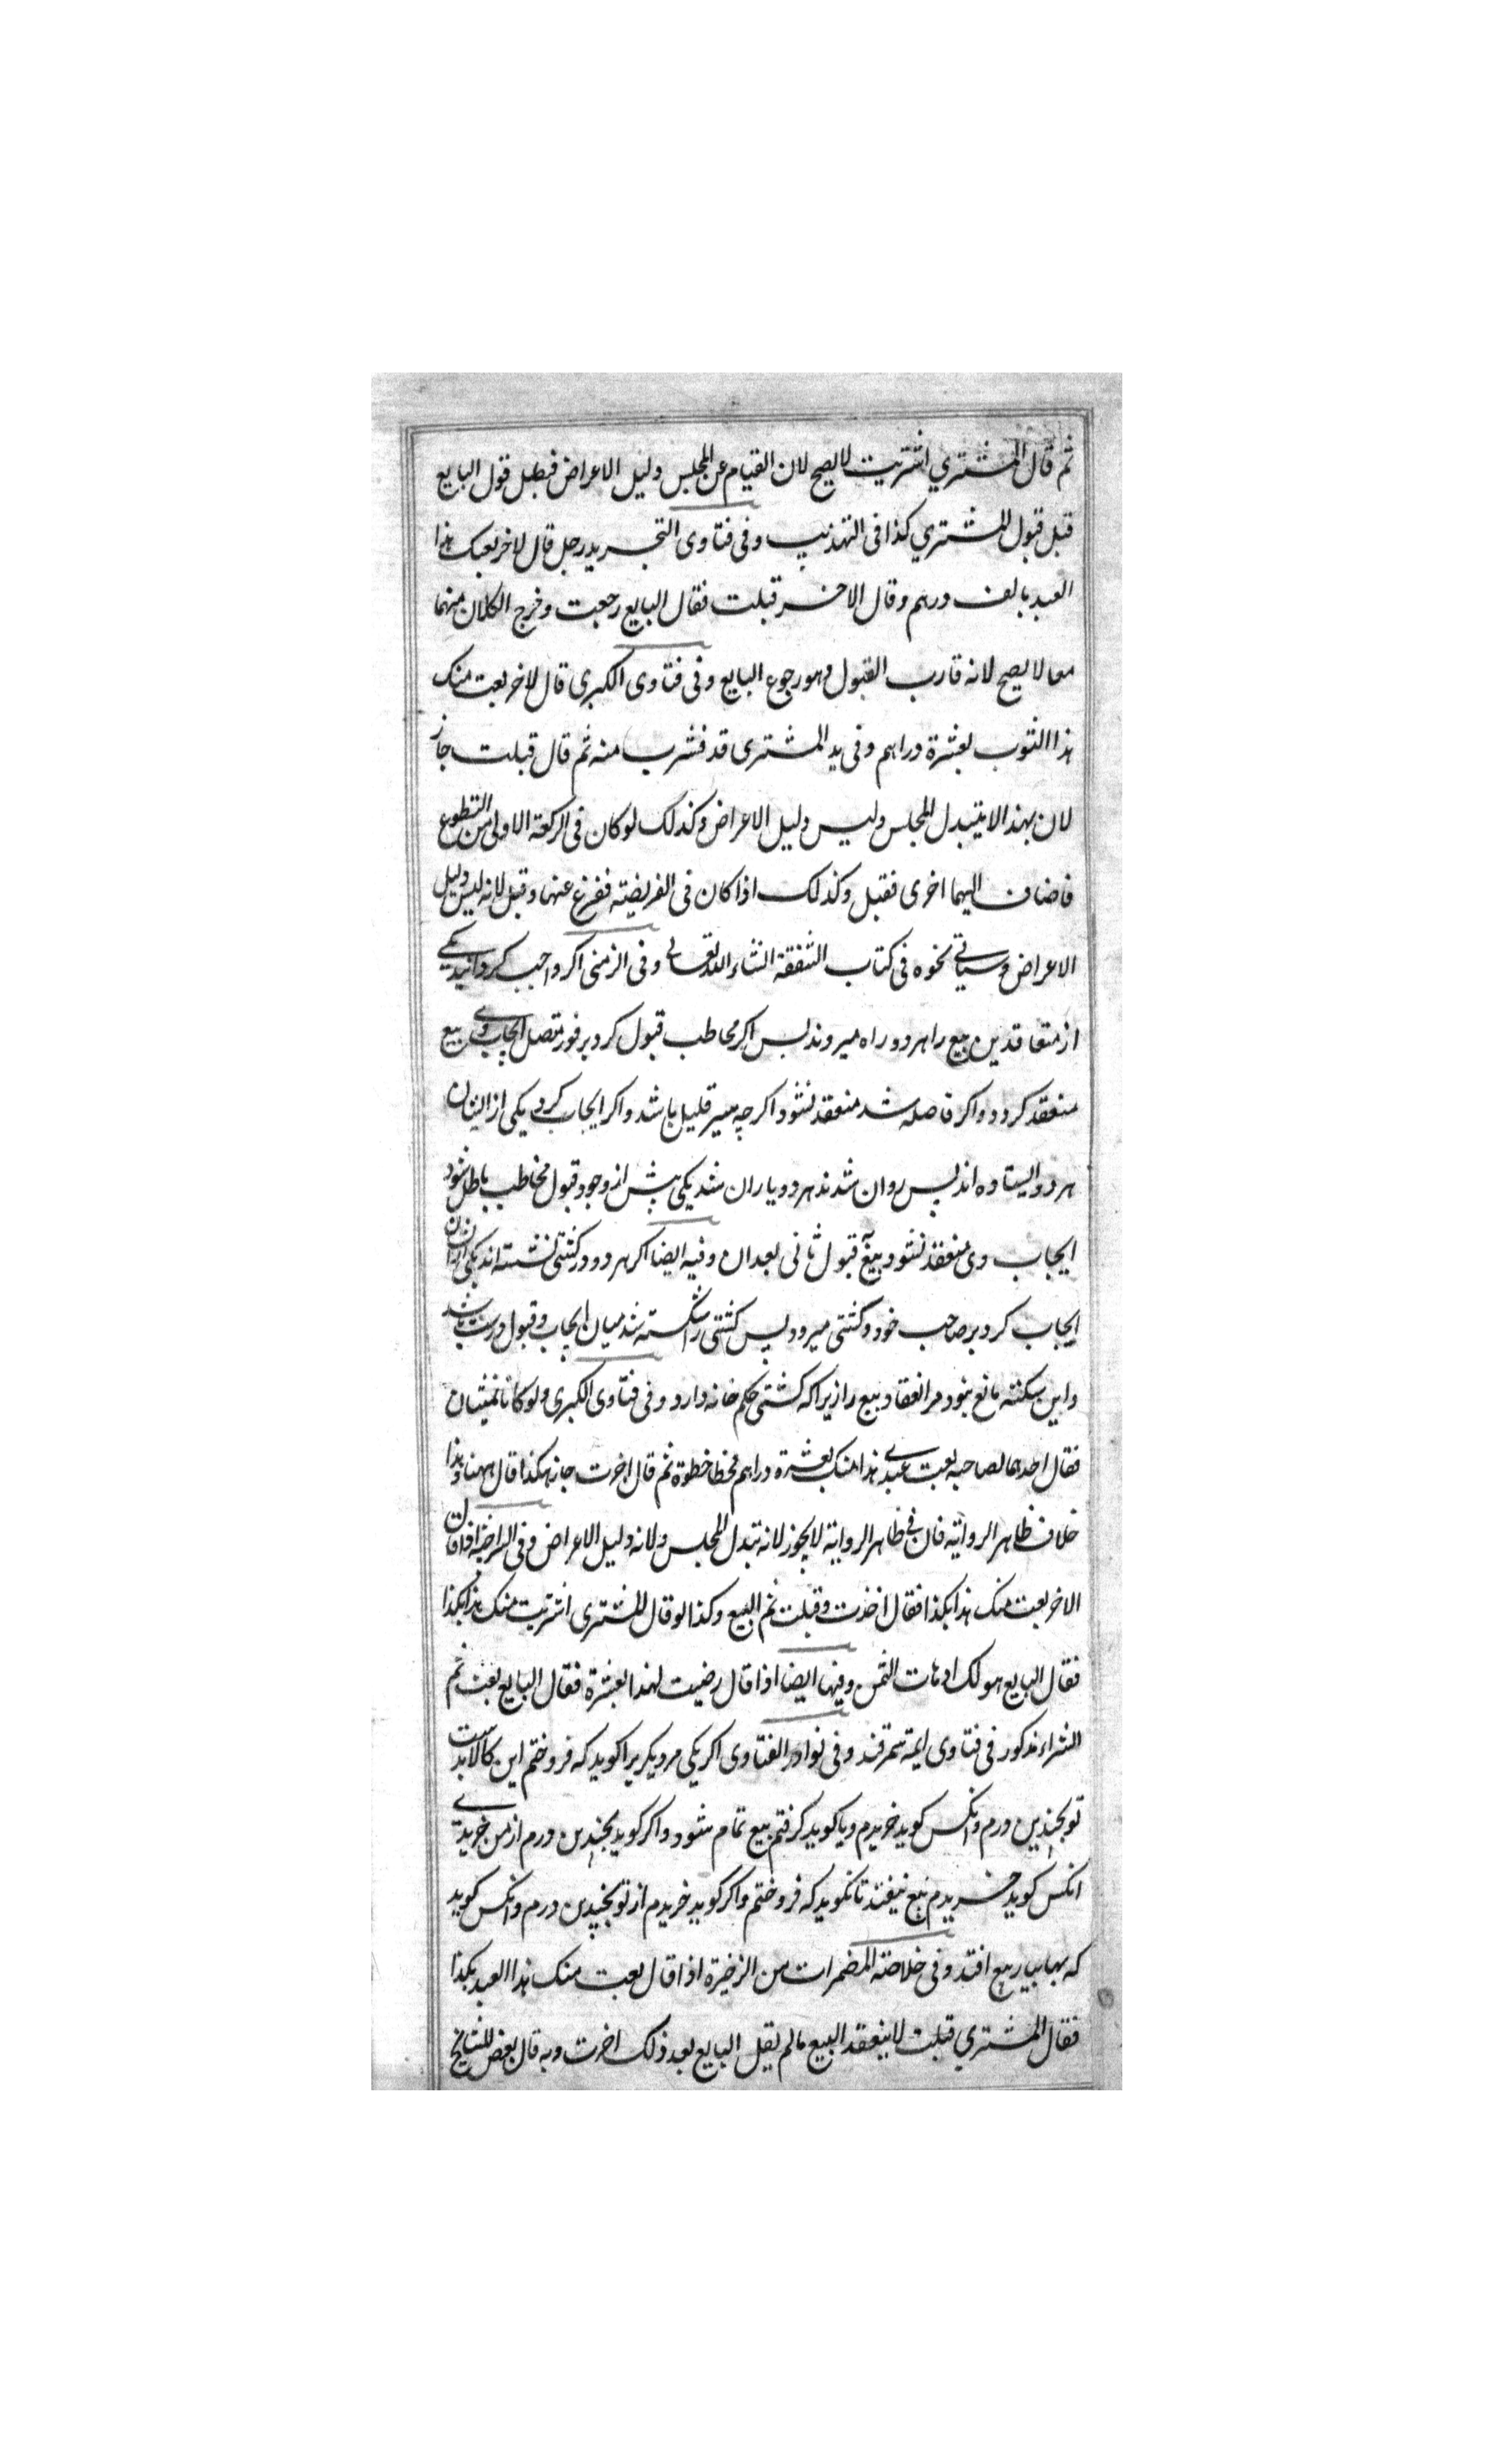 ثم قال المشتري اشتريت لا يصح لان القيام عن المجلس دليل الاعراض فبطل قول البايع
قبل قبول المشتري كذا فى التهذيب وفى فتاوى التجريد رجل قال لاخر بعتك هذا
العبد بالف درهم وقال الاخر قبلت فقال البايع رجعت وخرج الكلامان منهما
معا لا يصح لانه قارب القبول وهو رجوع البايع وفى فتاوى الكبرى قال لاخر بعت منك
هذا الثوب بعشرة دراهم وفى يد المشترى قدح فشرب منه ثم قال قبلت جاز
لان بهذا لا يتبدل المجلس وليس دليل الاعراض وكذلك لو كان فى الركعة الاولى من التطوع
فاضاف اليهما اخرى فقبل وكذلك اذا كان فى الفريضة ففرغ عنها وقبل لانه ليس دليل
الاعراض وسياتي نحوه فى كتاب الشفقة انشاء الله تعالى وفى الزمنى اكر واجب كردانيد يكي
از متعاقدين بيع را هر دو راه ميروند بس اكر مخاطب قبول كرد بر فور متصل ايجاب وي بيع
منعقد كردد واكر فاصله شد منعقد نشود اكر چه سير قليل باشد واكر ايجاب كرد يكى از ايشان
هر دو ايستاده اند پس روان شدند هر دو يا روان شد يكى پيش از وجود قبول مخاطب باطل شود
ايجاب وى منعقد نشود بيع قبول ثانى بعد ان وفيه ايضا اكر هر دو در كشتى نشسته اند يكى از ايشان
ايجاب كرد بر صاحب خود وكشتى ميرود پس كشتى را شكسته شد ميان ايجاب وقبول درست باشد
واين سكته مانع نبود مر انعقاد بيع را زيرا كه كشتى حكم خانه دارد وفى فتاوى الكبرى ولو كانا يمشيان
فقال احدهما لصاحبه بعت عبدي هذا منك بعشرة دراهم فخطا خطوة ثم قال اخرت جاز هكذا قال ههنا وهذا
خلاف ظاهر الرواية فان فى ظاهر الرواية لا يجوز لانه تبدل المجلس ولانه دليل الاعراض وفى السراجية اذا قال
الاخر بعت منك هذا بكذا فقال اخذت وقبلت تم البيع وكذا لو قال المشترى اشتريت منك هذا بكذا
فقال البايع هو لك او هات الثمن وفيها ايضا اذا قال رضيت لهذا بعشرة فقال البايع بعت تم
الشراء مذكور فى فتاوى ايمة سمرقند وفى نوادر الفتاوى اكر يكى مر ديكريرا كويد كه فروختم اين كالا بدست
تو بچندين درم وانكس كويد خريدم ويا كويد كرفتم بيع تمام شود واكر كويد بچندين درم از من خريدي
انكس كويد خريدم بيع نيفتد تا نكويد كه فروختم واكر كويد خريدم از تو بچندين درم وانكس كويد
كه بها بيار بيع افتد وفى خلاصة المضمرات من الزخيرة اذا قال بعت منك هذا العبد بكذا
فقال المشتري قبلت لا ينعقد البيع ما لم يقل البايع بعد ذلك اخرت وبه قال بعض المشايخ